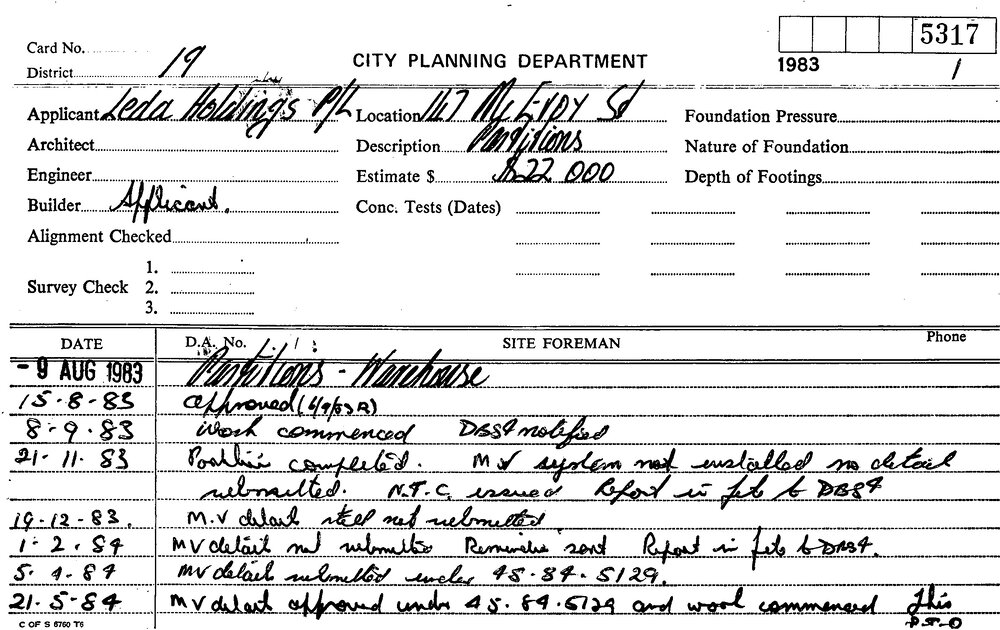 5317
Card No.
District 19
CITY PLANNING DEPARTMENT
1983
1
Applicant Leda Holdings P/L Location 167 McEvoy St Foundation Pressure
Architect Description Partitions Nature of Foundation
Engineer Estimate $ $22 000 Depth of Footings
Builder Applicant. Conc. Tests (Dates)
Alignment Checked
1.
Survey Check 2.
3.
DATE D.A. No. SITE FOREMAN Phone
- 9 AUG 1983 Partitions - Warehouse
15-8-83 approved
8-9-83 Work commenced DBS4 notified
21-11-83 completed. MV system not installed no detail
submitted. N.T.C. issued Report in file to DBS4
19-12-83. M.V detail still not submitted
1-2-84 MV detail not submitted Reminder sent Report in file to DBS4.
5-4-84 MV detail submitted under 45-84-5129.
21-5-84 MV detail approved under 45.84.5129 and work commenced This
P.T.O
C OF S 6760 T6